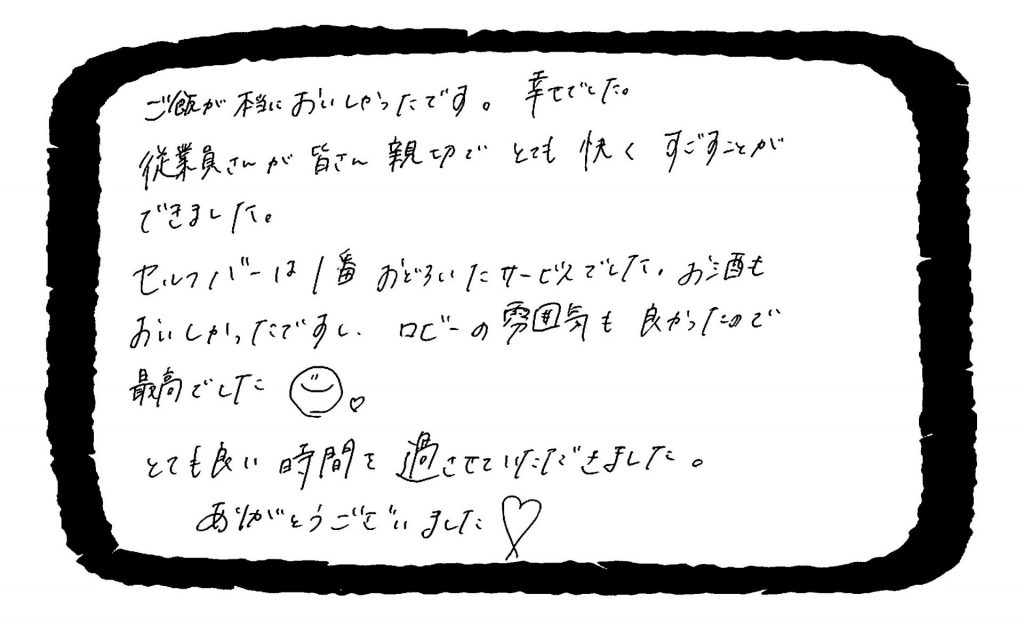 ご飯が本当においしかったです。幸せでした。
従業員さんが皆さん親切でとても快くすごすことが
できました。
セルフバーは1番おどろいたサービスでした。お酒も
おいしかったですし、ロビーの雰囲気も良かったので
最高でした
とても良い時間を過させていただきました。
ありがとうございました♡